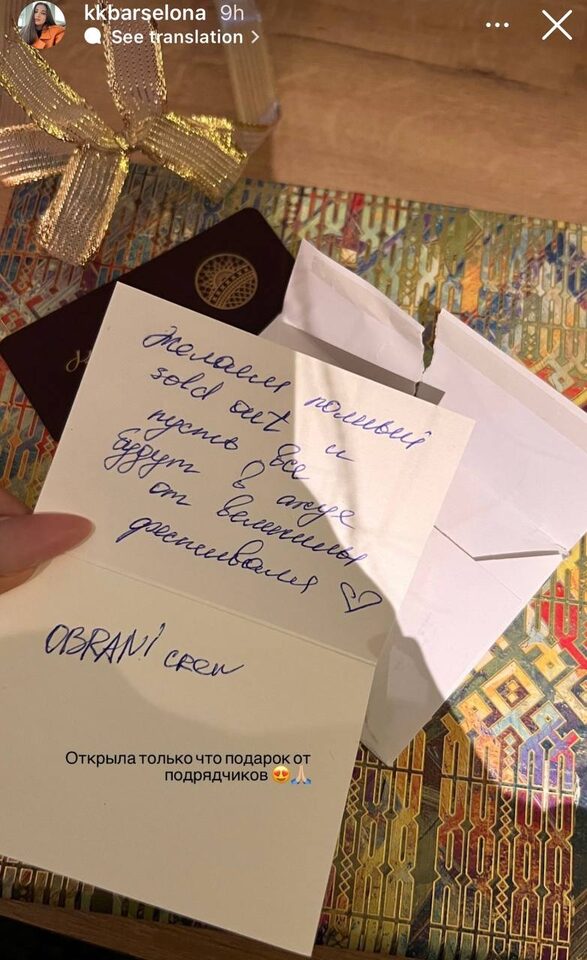 kkbarselona 9h
See translation >
Желаем полный
sold out и
пусть все
будут в ахуе
от величины
фестиваля ♡
OBRANI crew
Открыла только что подарок от
подрядчиков 😍🙏🏻